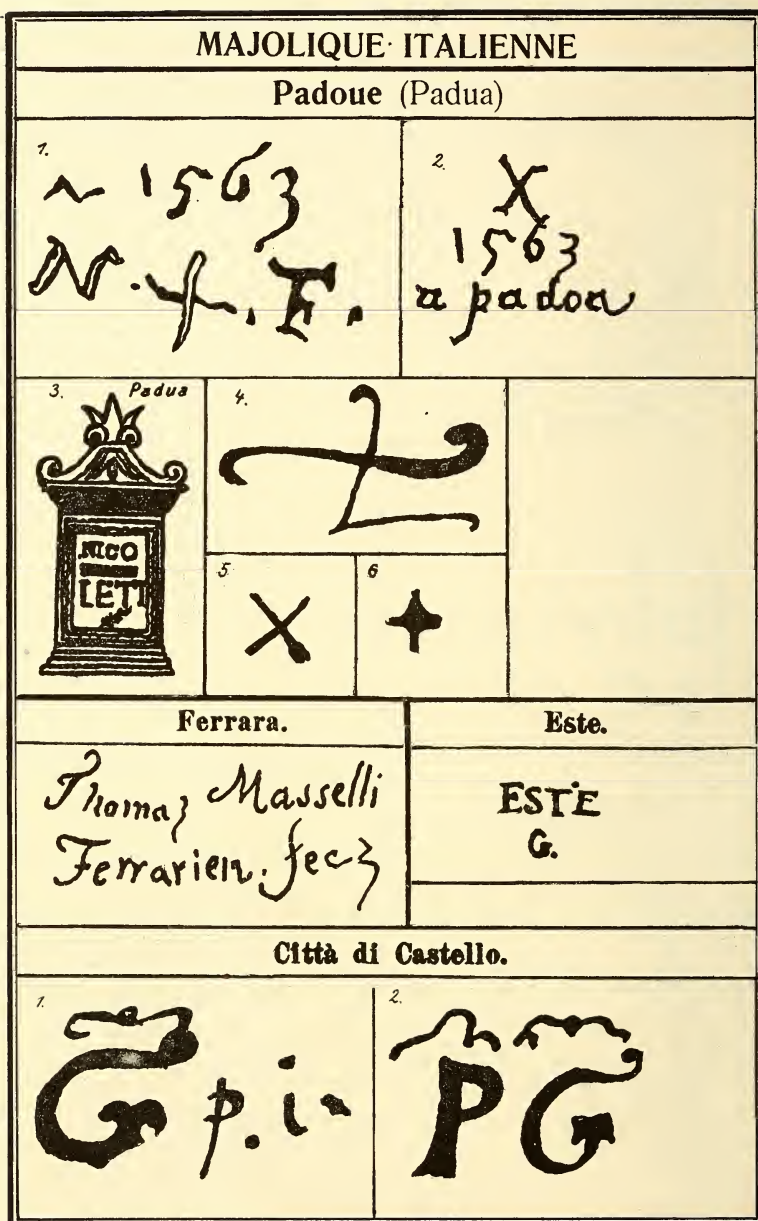 MAJOLIQUE ITALIENNE
Padoue (Padua)
1.
~ 1563
N. + . F.
2.
X
1563
a padoa
3. Padua
NICO
LETI
4.
5
6
Ferrara.
Thomaz Masselli
Ferrarien. fec
Este.
ESTE
G.
Città di Castello.
1.
G p. i
2.
PG